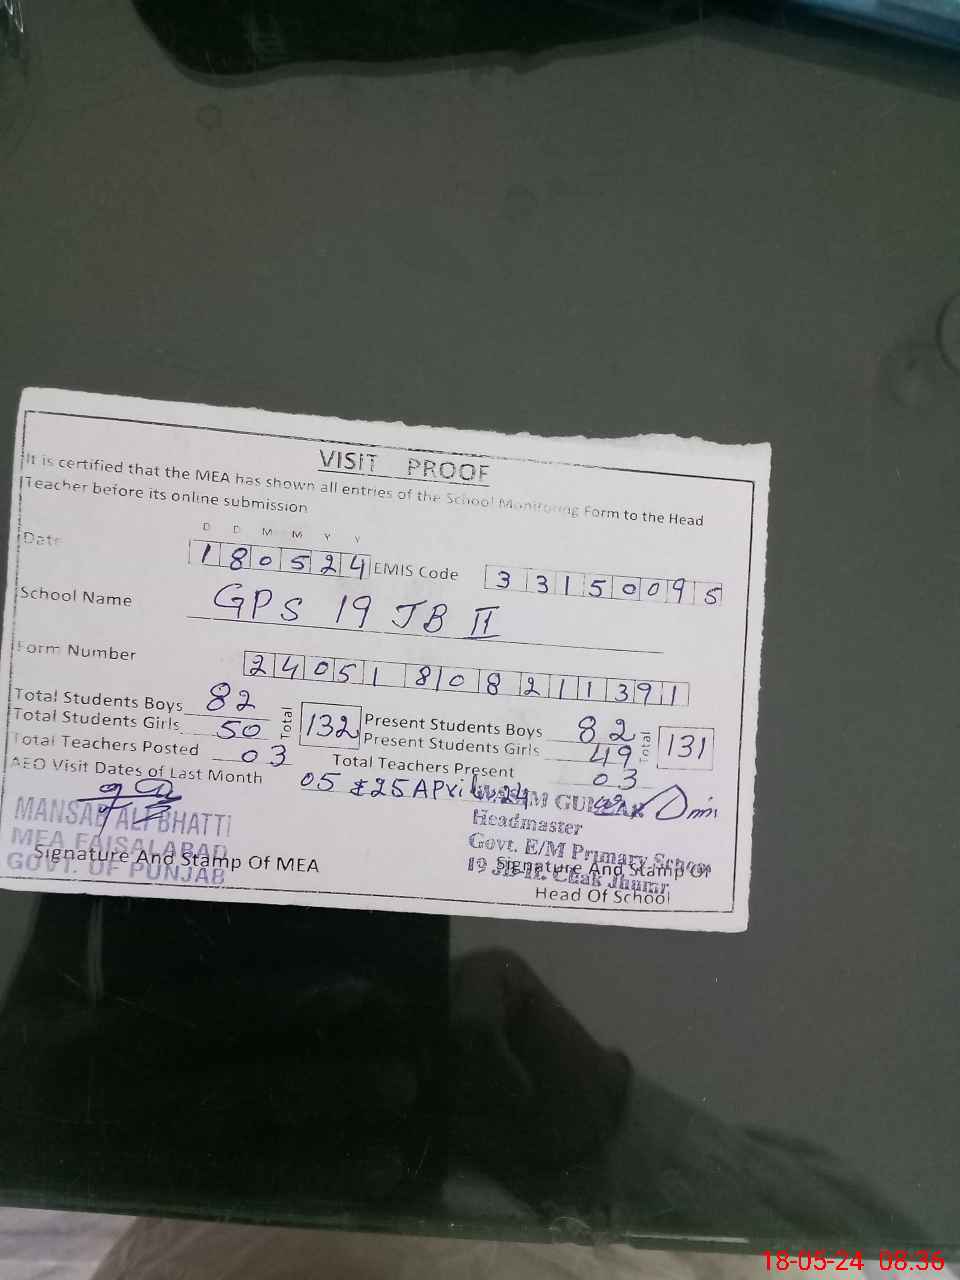 VISIT PROOF
It is certified that the MEA has shown all entries of the School Monitoring Form to the Head
Teacher before its online submission
D D M M Y Y
Date 180524 EMIS Code 33150095
School Name GPS 19 JB II
Form Number 24051808211391
Total Students Boys 82 Total 132 Present Students Boys 82 Total 131
Total Students Girls 50 Present Students Girls 49
Total Teachers Posted 03 Total Teachers Present 03
AEO Visit Dates of Last Month 05 & 25 April 24
MANSAB ALI BHATTI
MEA FAISALABAD
GOVT. OF PUNJAB
Signature And Stamp Of MEA
Headmaster
Govt. E/M Primary School
19 JB II. Chak Jhumr
Signature And Stamp Of
Head Of School
18-05-24 08:36